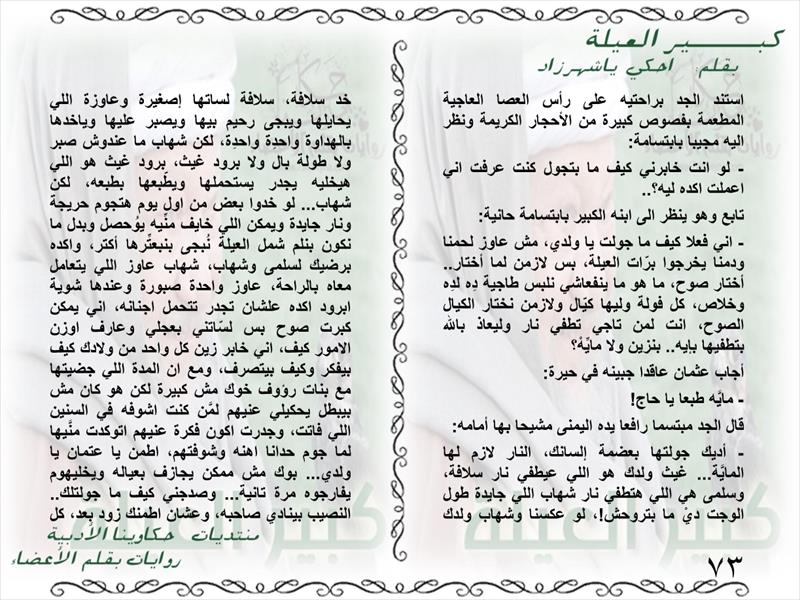 كبير العيلة
بقلم احكي ياشهرزاد
استند الجد براحتيه على رأس العصا العاجية
المطعمة بفصوص كبيرة من الأحجار الكريمة ونظر
اليه مجيبا بابتسامة:
- لو انت خابرني كيف ما بتجول كنت عرفت اني
اعملت اكده ليه؟..
تابع وهو ينظر الى ابنه الكبير بابتسامة حانية:
- اني فعلا كيف ما جولت يا ولدي، مش عاوز لحمنا
ودمنا يخرجوا برّات العيلة، بس لازمن لما أختار..
أختار صوح، ما هو ما ينفعاشي نلبس طاجية دِه لدِه
وخلاص، كل فولة وليها كيّال ولازمن نختار الكيال
الصوح، انت لمن تاجي تطفي نار وليعاذ بالله
بتطفيها بإيه.. بنزين ولا مايّه؟
أجاب عثمان عاقدا جبينه في حيرة:
- مايّه طبعا يا حاج!
قال الجد مبتسما رافعا يده اليمنى مشيحا بها أمامه:
- أديك جولتها بعضمة إلسانك، النار لازم لها
المايّة... غيث ولدك هو اللي عيطفي نار سلافة،
وسلمى هي اللي هتطفي نار شهاب اللي جايدة طول
الوجت ديْ ما بتروحش!، لو عكسنا وشهاب ولدك
خد سلافة، سلافة لساتها إصغيرة وعاوزة اللي
يحايلها ويبجى رحيم بيها ويصبر عليها وياخدها
بالهداوة واحدة واحدة، لكن شهاب ما عندوش صبر
ولا طولة بال ولا برود غيث، برود غيث هو اللي
هيخليه يجدر يستحملها ويطّبعها بطبعه، لكن
شهاب... لو خدوا بعض من اول يوم هتجوم حريجة
ونار جايدة ويمكن اللي خايف منّيه يُوحصل وبدل ما
نكون بنلم شمل العيلة تُبجى بنبعتّرها أكتر، واكده
برضيك لسلمى وشهاب، شهاب عاوز اللي يتعامل
معاه بالراحة، عاوز واحدة صبورة وعندها شوية
ابرود اكده علشان تجدر تتحمل اجنانه، اني يمكن
كبرت صوح بس لسّاتني بعجلي وعارف اوزن
الامور كيف، اني خابر زين كل واحد من ولادك كيف
بيفكر وكيف بيتصرف، ومع ان المدة اللي جضيتها
مع بنات رؤوف خوك مش كبيرة لكن هو كان مش
بيبطل يحكيلي عنيهم لمَّن كنت اشوفه في السنين
اللي فاتت، وجدرت اكون فكرة عنيهم اتوكدت منّيها
لما جوم حدانا اهنه وشوفتهم، اطمن يا عتمان يا
ولدي... بوك مش ممكن يجازف بعياله ويخليهوم
يفارجوه مرة تانية... وصدجني كيف ما جولتلك..
النصيب بينادي صاحبه، وعشان اطمنك زود بِعد، كل
منتديات حكاوينا الأدبية
روايات بقلم الأعضاء
٧٣